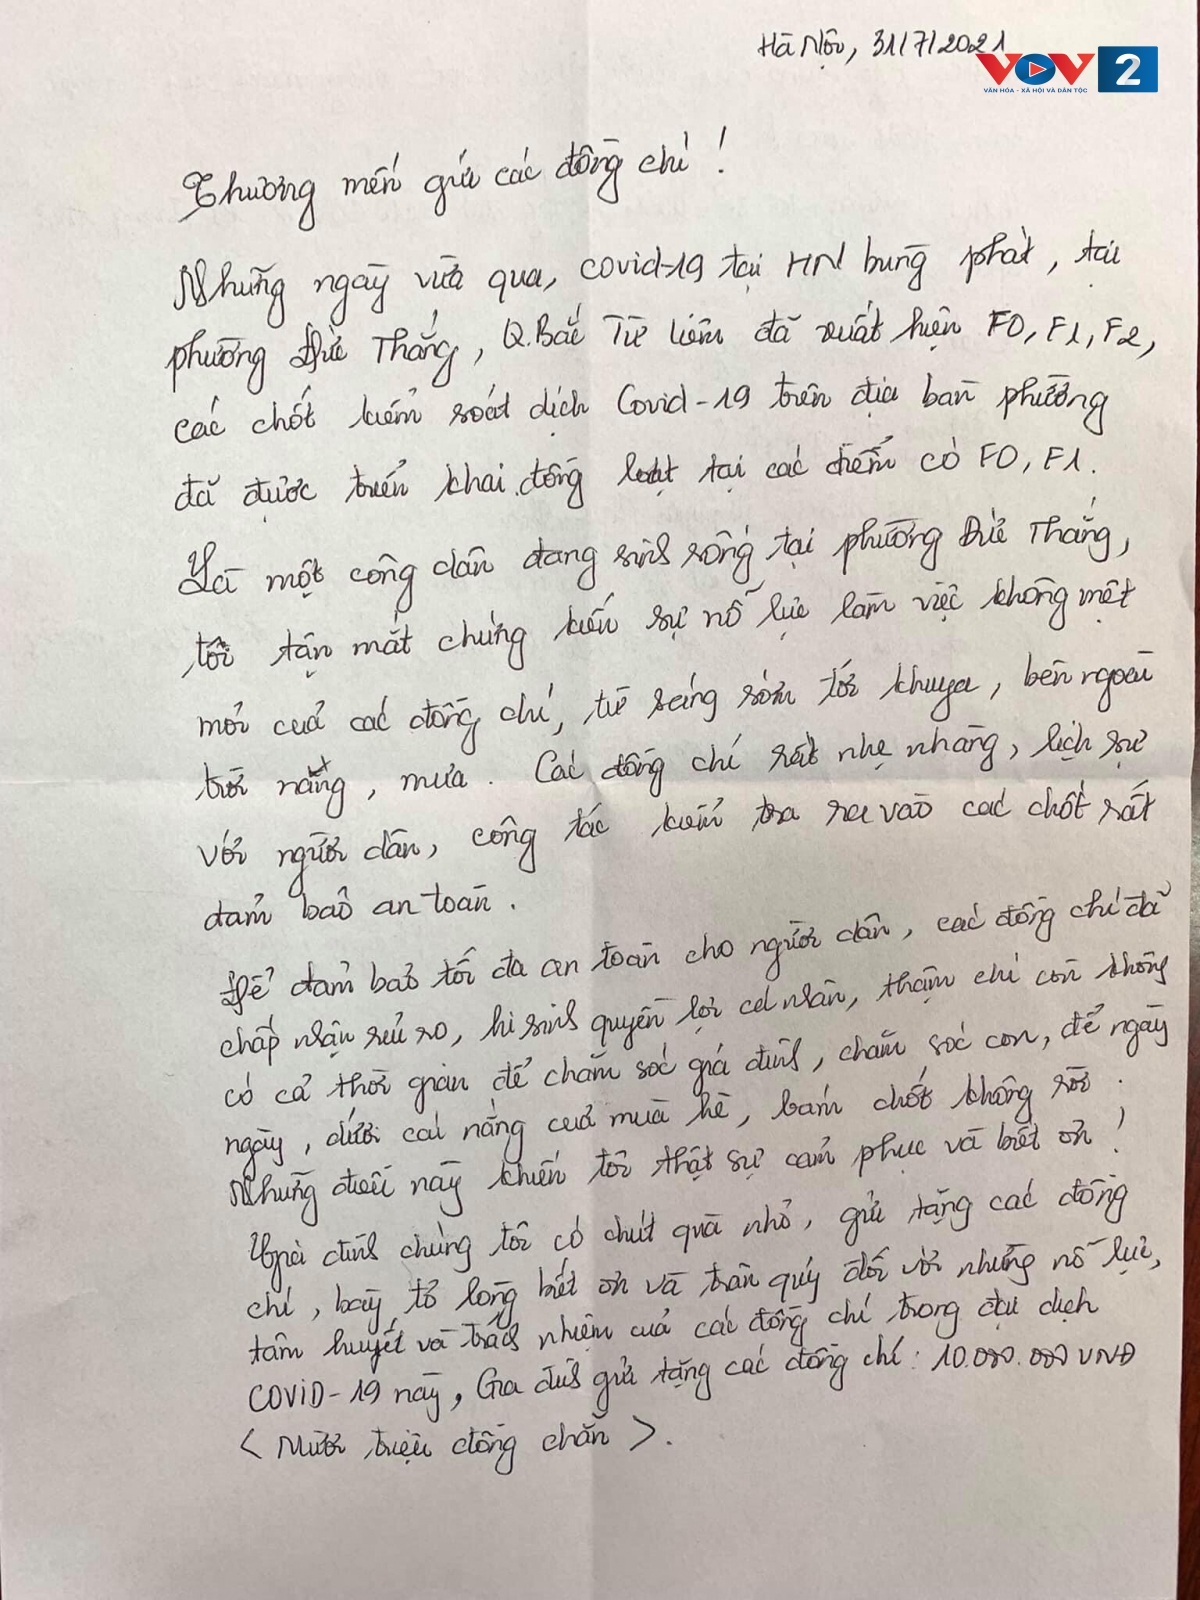 Hà Nội, 31/7/2021
VOV 2
VĂN HÓA - XÃ HỘI VÀ DÂN TỘC
Thương mến gửi các đồng chí !
Những ngày vừa qua, covid-19 tại HN bùng phát, tại
phường Đức Thắng, Q.Bắc Từ Liêm đã xuất hiện F0, F1, F2,
các chốt kiểm soát dịch Covid-19 trên địa bàn phường
đã được triển khai đồng loạt tại các điểm có F0, F1.
Là một công dân đang sinh sống tại phường Đức Thắng,
tôi tận mắt chứng kiến sự nỗ lực làm việc không mệt
mỏi của các đồng chí, từ sáng sớm tới khuya, bên ngoài
trời nắng, mưa. Các đồng chí rất nhẹ nhàng, lịch sự
với người dân, công tác kiểm tra ra vào các chốt rất
đảm bảo an toàn.
Để đảm bảo tối đa an toàn cho người dân, các đồng chí đã
chấp nhận rủi ro, hi sinh quyền lợi cá nhân, thậm chí còn không
có cả thời gian để chăm sóc gia đình, chăm sóc con, để ngày
ngày, dưới cái nắng của mùa hè, bám chốt không rời.
Những điều này khiến tôi thật sự cảm phục và biết ơn !
Gia đình chúng tôi có chút quà nhỏ, gửi tặng các đồng
chí, bày tỏ lòng biết ơn và trân quý đối với những nỗ lực,
tâm huyết và trách nhiệm của các đồng chí trong đại dịch
COVID-19 này, Gia đình gửi tặng các đồng chí : 10.000.000 VNĐ
< Mười triệu đồng chẵn >.